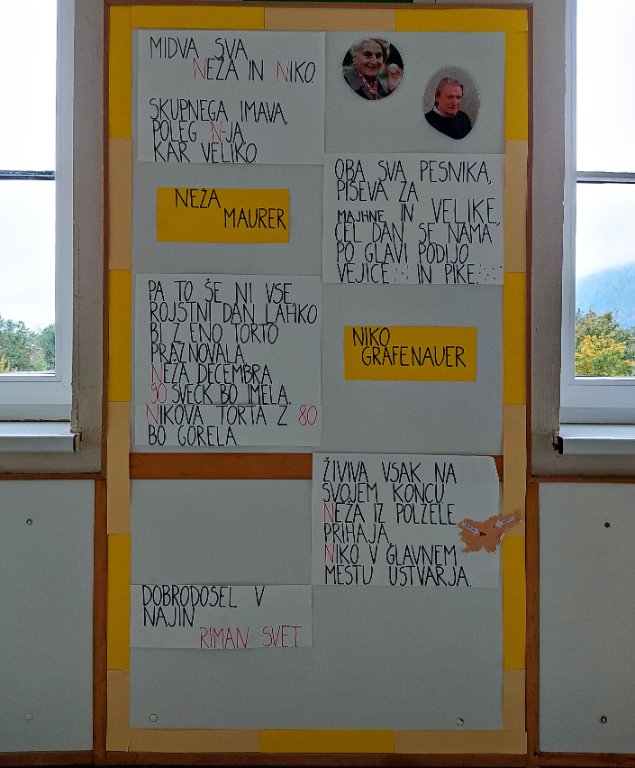 MIDVA SVA
NEŽA IN NIKO
SKUPNEGA IMAVA,
POLEG N-JA,
KAR VELIKO.
OBA SVA PESNIKA,
PIŠEVA ZA
MAJHNE IN VELIKE,
CEL DAN SE NAMA
PO GLAVI PODIJO
VEJICE,,, IN PIKE...
NEŽA
MAURER
PA TO ŠE NI VSE,
ROJSTNI DAN LAHKO
BI Z ENO TORTO
PRAZNOVALA.
NEŽA DECEMBRA
90 SVEČK BO IMELA.
NIKOVA TORTA Z 80
BO GORELA.
NIKO
GRAFENAUER
ŽIVIVA VSAK NA
SVOJEM KONCU
NEŽA IZ POLZELE
PRIHAJA,
NIKO V GLAVNEM
MESTU USTVARJA.
DOBRODOŠEL V
NAJIN
RIMAN SVET